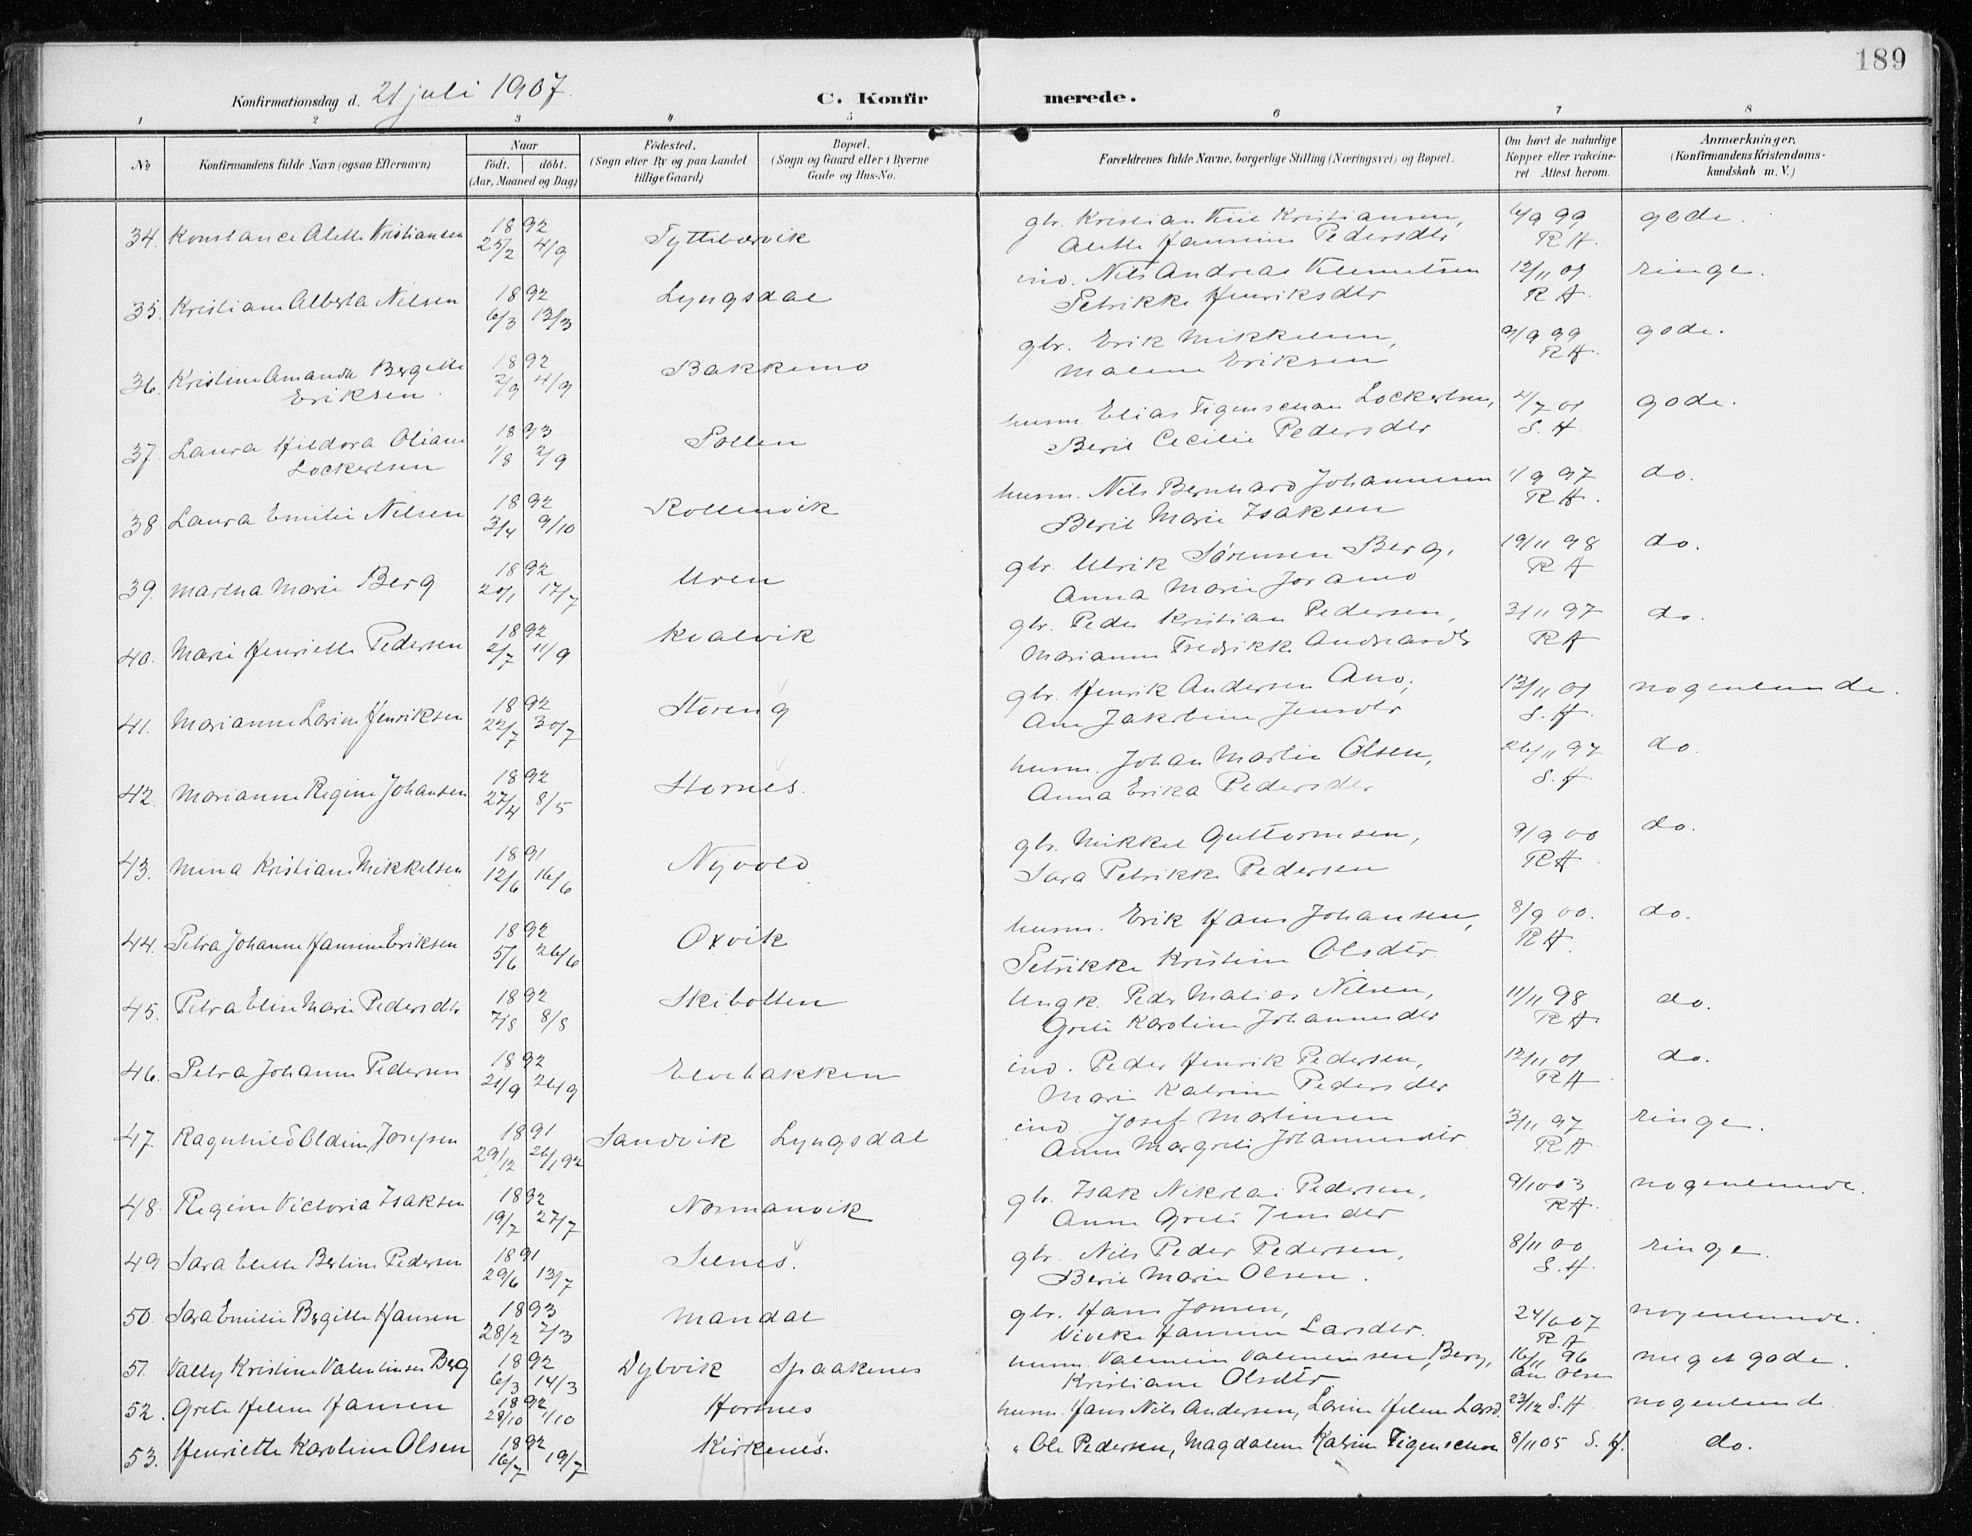 189
Konfirmationsdag d. 21 juli 1907.
C. Konfirmerede.
1 2 3 4 5 6 7 8
No
Konfirmandens fulde Navn (ogsaa Efternavn)
Naar
født. døbt.
(Aar, Maaned og Dag)
Fødested.
(Sogn eller By og paa Landet
tillige Gaard)
Bopæl.
(Sogn og Gaard eller i Byerne
Gade og Hus-No.
Forældrenes fulde Navne, borgerlige Stilling (Næringsvei) og Bopæl.
Om havt de naturlige
Kopper eller vakcine-
ret. Attest herom.
Anmærkninger.
(Konfirmandens Kristendoms-
kundskab m. V.)
34. Konstance Alette Kristiansen 1892 25/2 4/9 Tyttebærvik gbr. Kristian Kiil Kristiansen, 6/9 99 gode.
Alette Hansine Pedersdtr R H.
35. Kristiane Alberta Nilsen 1892 6/3 13/3 Lyngsdal ind. Nils Andreas Klemetsen 12/11 01 ringe.
Petrikke Henriksdtr R H.
36. Kristine Amanda Bergette 1892 2/9 4/9 Bakkemo gbr. Erik Mikkelsen, 9/9 99 gode.
Eriksen. Malene Eriksen R H.
37. Laura Hildora Oliane 1893 1/8 2/9 Pollen husm. Elias Figenschau Lockertsen, 4/7 01 gode.
Lockertsen Berit Cecilie Pedersdtr S. H.
38 Laura Emilie Nilsen 1892 3/4 9/10 Rollenvik husm. Nils Bernhard Johannesen 1/9 97 do.
Berit Marie Isaksen R H.
39. Martha Marie Berg 1892 20/1 17/7 Uren gbr. Ulrik Sørensen Berg, 19/11 98 do.
Anna Marie Joramo R H
40. Marie Henriette Pedersen 1892 2/7 11/9 Kvalvik gbr. Peder Kristian Pedersen, 3/11 97 do.
Marianne Fredrikke Andreasdtr R H
41. Marianne Lorine Henriksen 1892 22/7 30/7 Storeng gbr. Henrik Andersen Ano, 13/11 01 nogenlunde.
Ane Jakobine Jensdtr S. H.
42. Marianne Regine Johansen 1892 27/4 8/5 Stornes. husm. Johan Martin Olsen, 26/11 97 do.
Anna Erika Pedersdtr S. H.
43. Mina Kristiane Mikkelsen 1891 12/6 16/6 Nyvold gbr. Mikkel Guttormsen, 9/9 00 do.
Sara Petrikke Pedersen R H.
44. Petra Johanne Hansine Eriksen 1892 5/6 26/6 Oxvik husm. Erik Hans Johansen, 8/9 00. do.
Petrikke Kristine Olsdtr. R H.
45. Petra Elen Marie Pedersdtr 1892 7/8 8/8 Skibotten Ungk. Peder Matias Nilsen, 11/11 98 do.
Grete Karoline Johannesdtr R H.
46. Petra Johanne Pedersen 1892 21/9 26/9 Elvebakken ind. Peder Henrik Pedersen, 12/11 01 do.
Marie Katrine Pedersdtr R H.
47. Ragnhild Oldine Josefsen 1891 29/12 26/1 92 Sandvik Lyngsdal ind. Josef Martinsen 3/11 97 ringe.
Anne Margrete Johannesdtr R H
48. Regine Victoria Isaksen 1892 19/7 27/7 Normanvik gbr. Isak Nikolai Pedersen, 9/10 03 nogenlunde.
Anne Grete Jensdtr R H.
49 Sara Elette Bertine Pedersen 1891 29/6 13/7 Selnes. gbr. Nils Peder Pedersen, 8/11 00 ringe.
Berit Marie Olsen. S. H.
50. Sara Emilie Bergitte Hansen 1893 28/2 7/3 Mandal gbr. Hans Jonsen, nogenlunde.
Viveke Hansine Larsdtr. R H
51. Vally Kristine Valentinsen Berg 1892 6/3 14/3 Dybvik Spaakenes husm. Valentin Valentinsen Berg, 16/11 96 meget gode.
Kristiane Olsdtr. An Olsen
52. Grete Helene Hansen 1892 28/10 Hornes husm. Hans Nils Andersen, Lorine Helene Larsd. 23/12 S. H nogenlunde.
53. Henriette Karoline Olsen 1892 16/7 19/7 Kirkenes. " Ole Pedersen, Magdalene Katrine Figenschou 8/11 05 S. H. do.